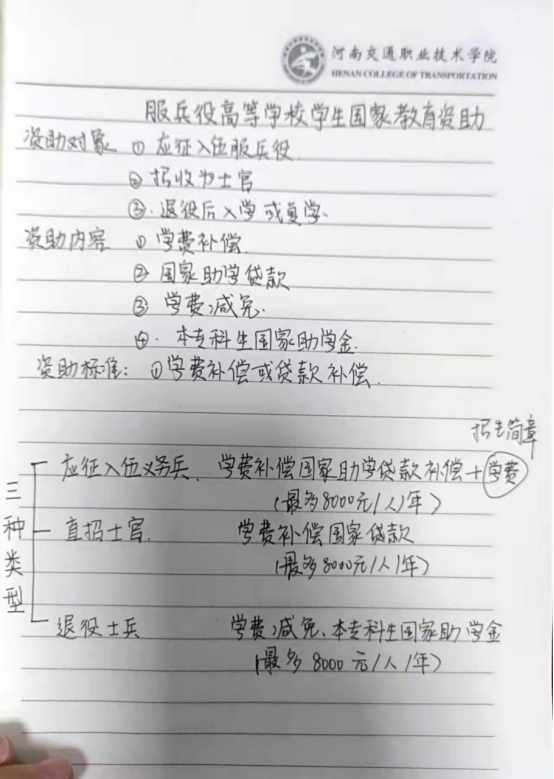 河南交通职业技术学院
HENAN COLLEGE OF TRANSPORTATION
服兵役高等学校学生国家教育资助
资助对象 ① 应征入伍服兵役.
② 招收为士官
③. 退役后入学或复学.
资助内容 ① 学费补偿
② 国家助学贷款
③ 学费减免.
④. 本专科生国家助学金.
资助标准: ①学费补偿或贷款补偿.
招生简章
三种类型
应征入伍义务兵. 学费补偿国家助学贷款补偿+学费
(最多8000元/人/年)
直招士官. 学费补偿国家贷款
(最多8000元/人/年)
退役士兵 学费减免、本专科生国家助学金
(最多8000元/人/年)